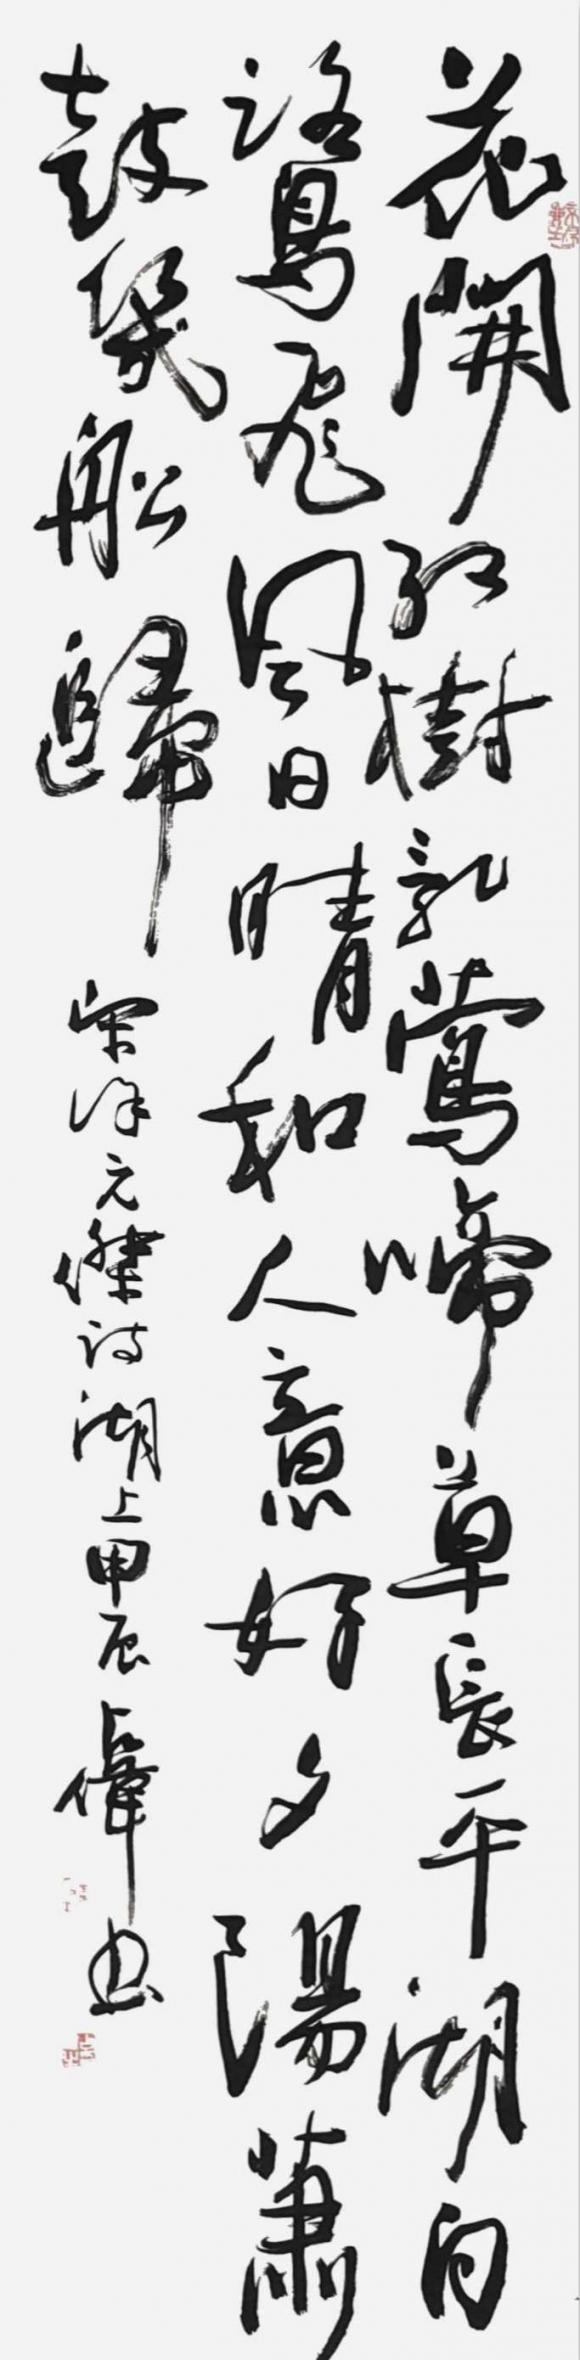 花開紅樹乱鶯啼草長平湖白
鷺飛風日晴和人意好夕陽蕭
鼓幾船歸 宋徐元傑詩湖上甲辰 偉书